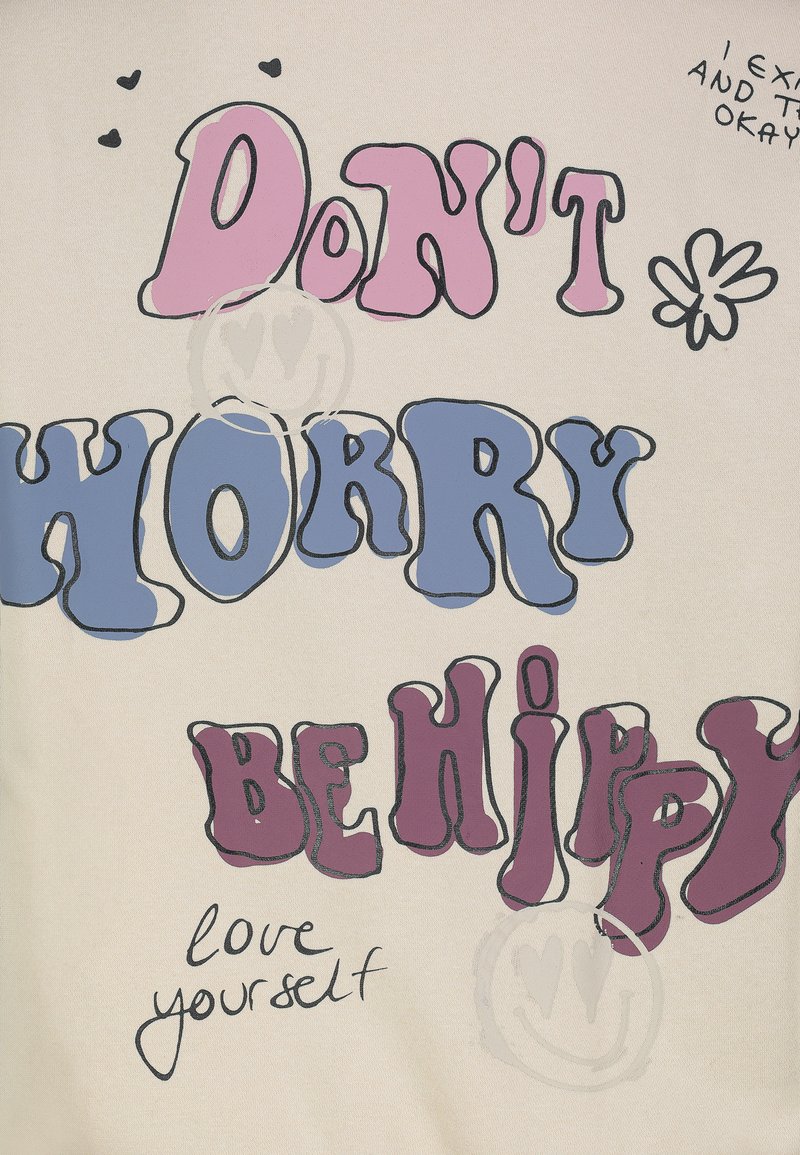 I
AND
OKAY
DON'T
WORRY
BE HiPPY
love
yourself